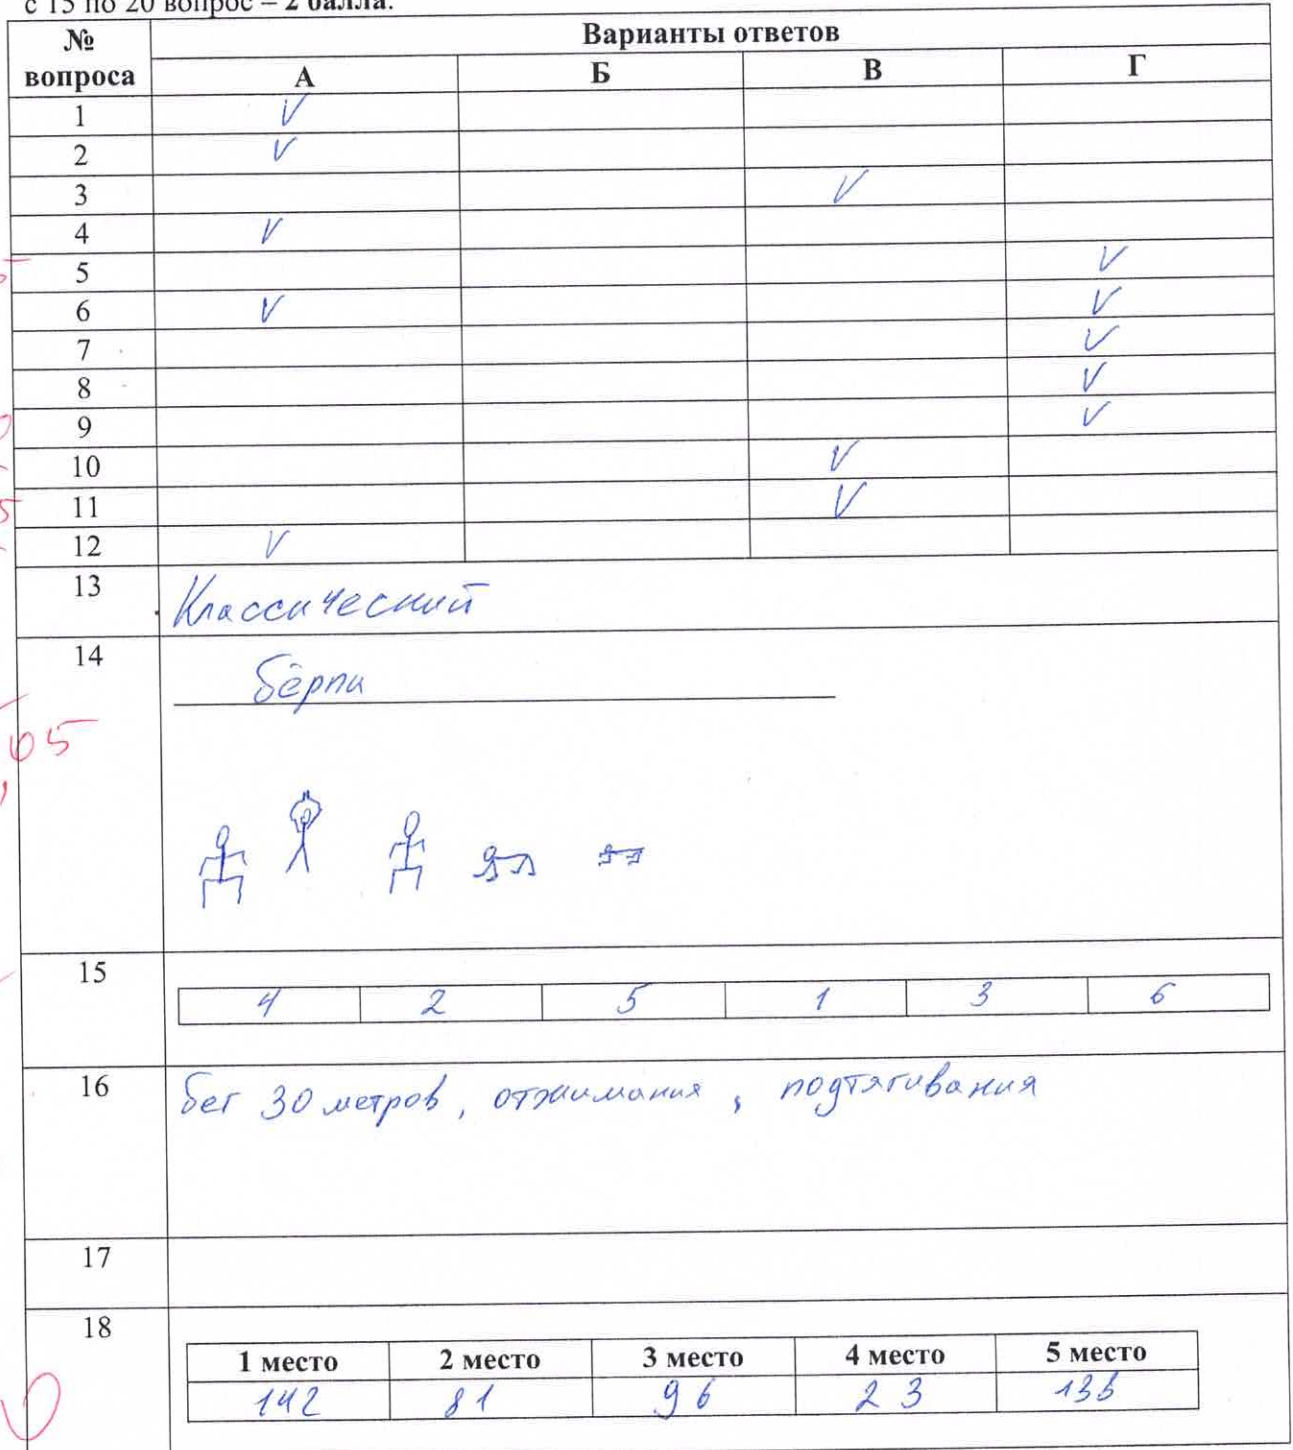 с 15 по 20 вопрос – 2 балла.
№ вопроса Варианты ответов
А Б В Г
1 V
2 V
3 V
4 V
5 V
6 V V
7 V
8 V
9 V
10 V
11 V
12 V
13 Классический
14 бёрпи
15 4 2 5 1 3 6
16 бег 30 метров, отжимания, подтягивания
17
18
1 место 2 место 3 место 4 место 5 место
142 81 96 23 135